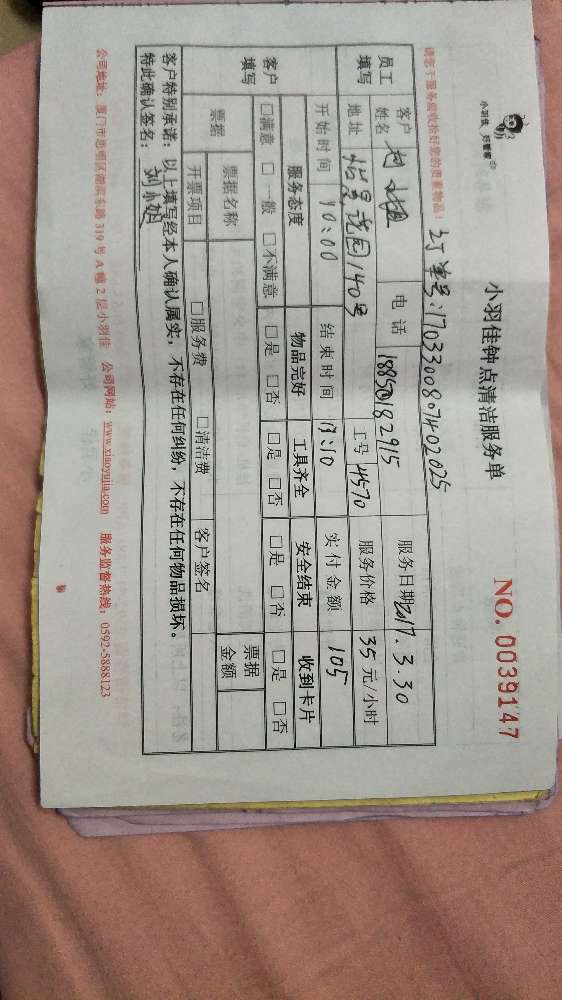 小羽佳 好管家
小羽佳钟点清洁服务单
NO. 0039147
请您于服务前收拾好您的贵重物品!
订单号:1703300807402025
员工填写
客户姓名
电话 18850182915
服务日期 2017.3.30
地址 怡景花园140号
工号 4570
服务价格 35 元/小时
开始时间 10:00
结束时间 13:10
实付金额 105
客户填写
服务态度 物品完好 工具齐全 安全结束 收到卡片
□满意 □一般 □不满意 □是 □否 □是 □否 □是 □否 □是 □否
票据
票据名称
票据金额
开票项目 □服务费 □清洁费 客户签名
客户特别承诺:以上填写经本人确认属实,不存在任何纠纷,不存在任何物品损坏。
特此确认签名: 刘小姐
公司地址:厦门市思明区湖滨东路 319 号 A 幢 2 层小羽佳 公司网站:www.xiaoyujia.com 服务监督热线:0592-5888123